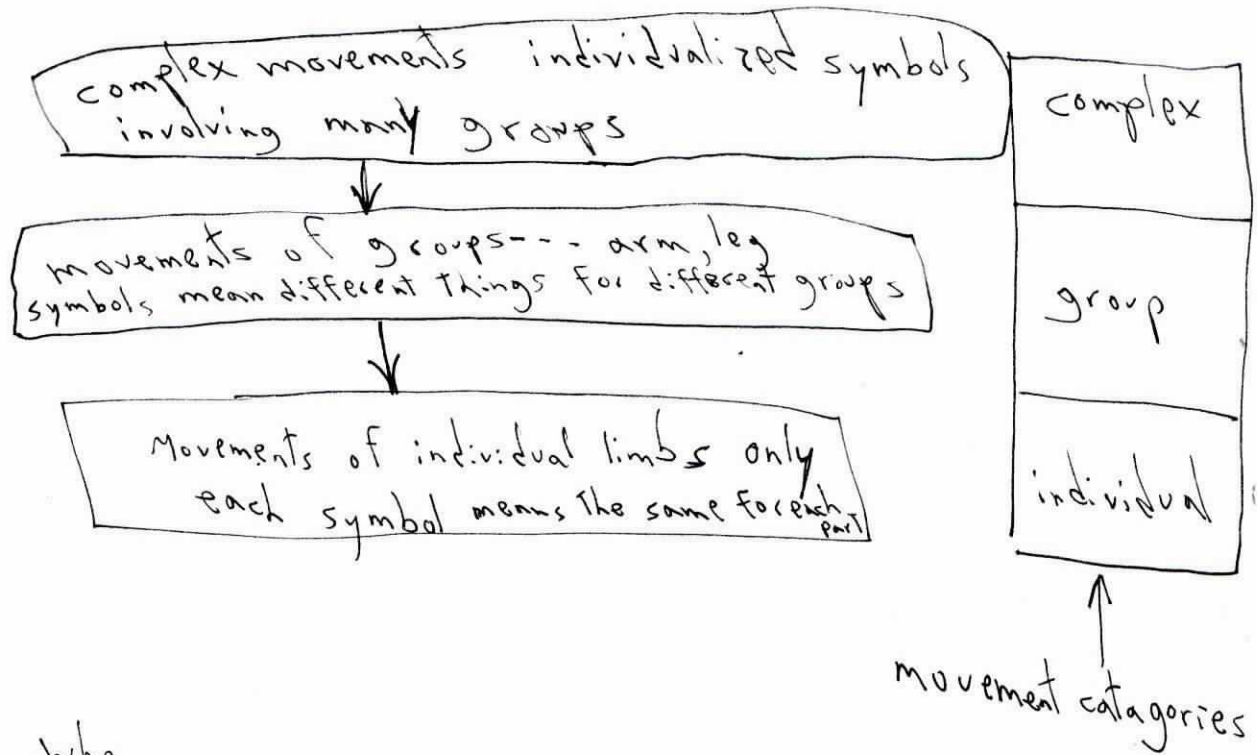 complex movements individualized symbols
involving many groups
complex
movements of groups--- arm, leg
symbols mean different things for different groups
group
Movements of individual limbs only
each symbol means the same for each
part
individual
movement catagories